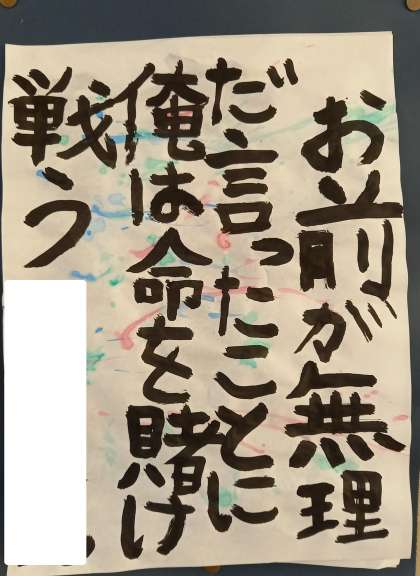 お前が無理
だ言ったことに
俺は命を賭け
戦う